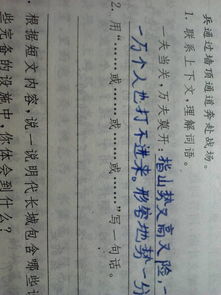 兵通过墙顶通道奔赴战场。
1. 联系上下文，理解词语。
一夫当关，万夫莫开：指山势又高又险，一
万个人也打不进来。形容地势一分
2. 用“……或……或……或……”写一句话。
. 根据短文内容，说一说明代长城包含哪些
些完备的设施中，你体会到什么？